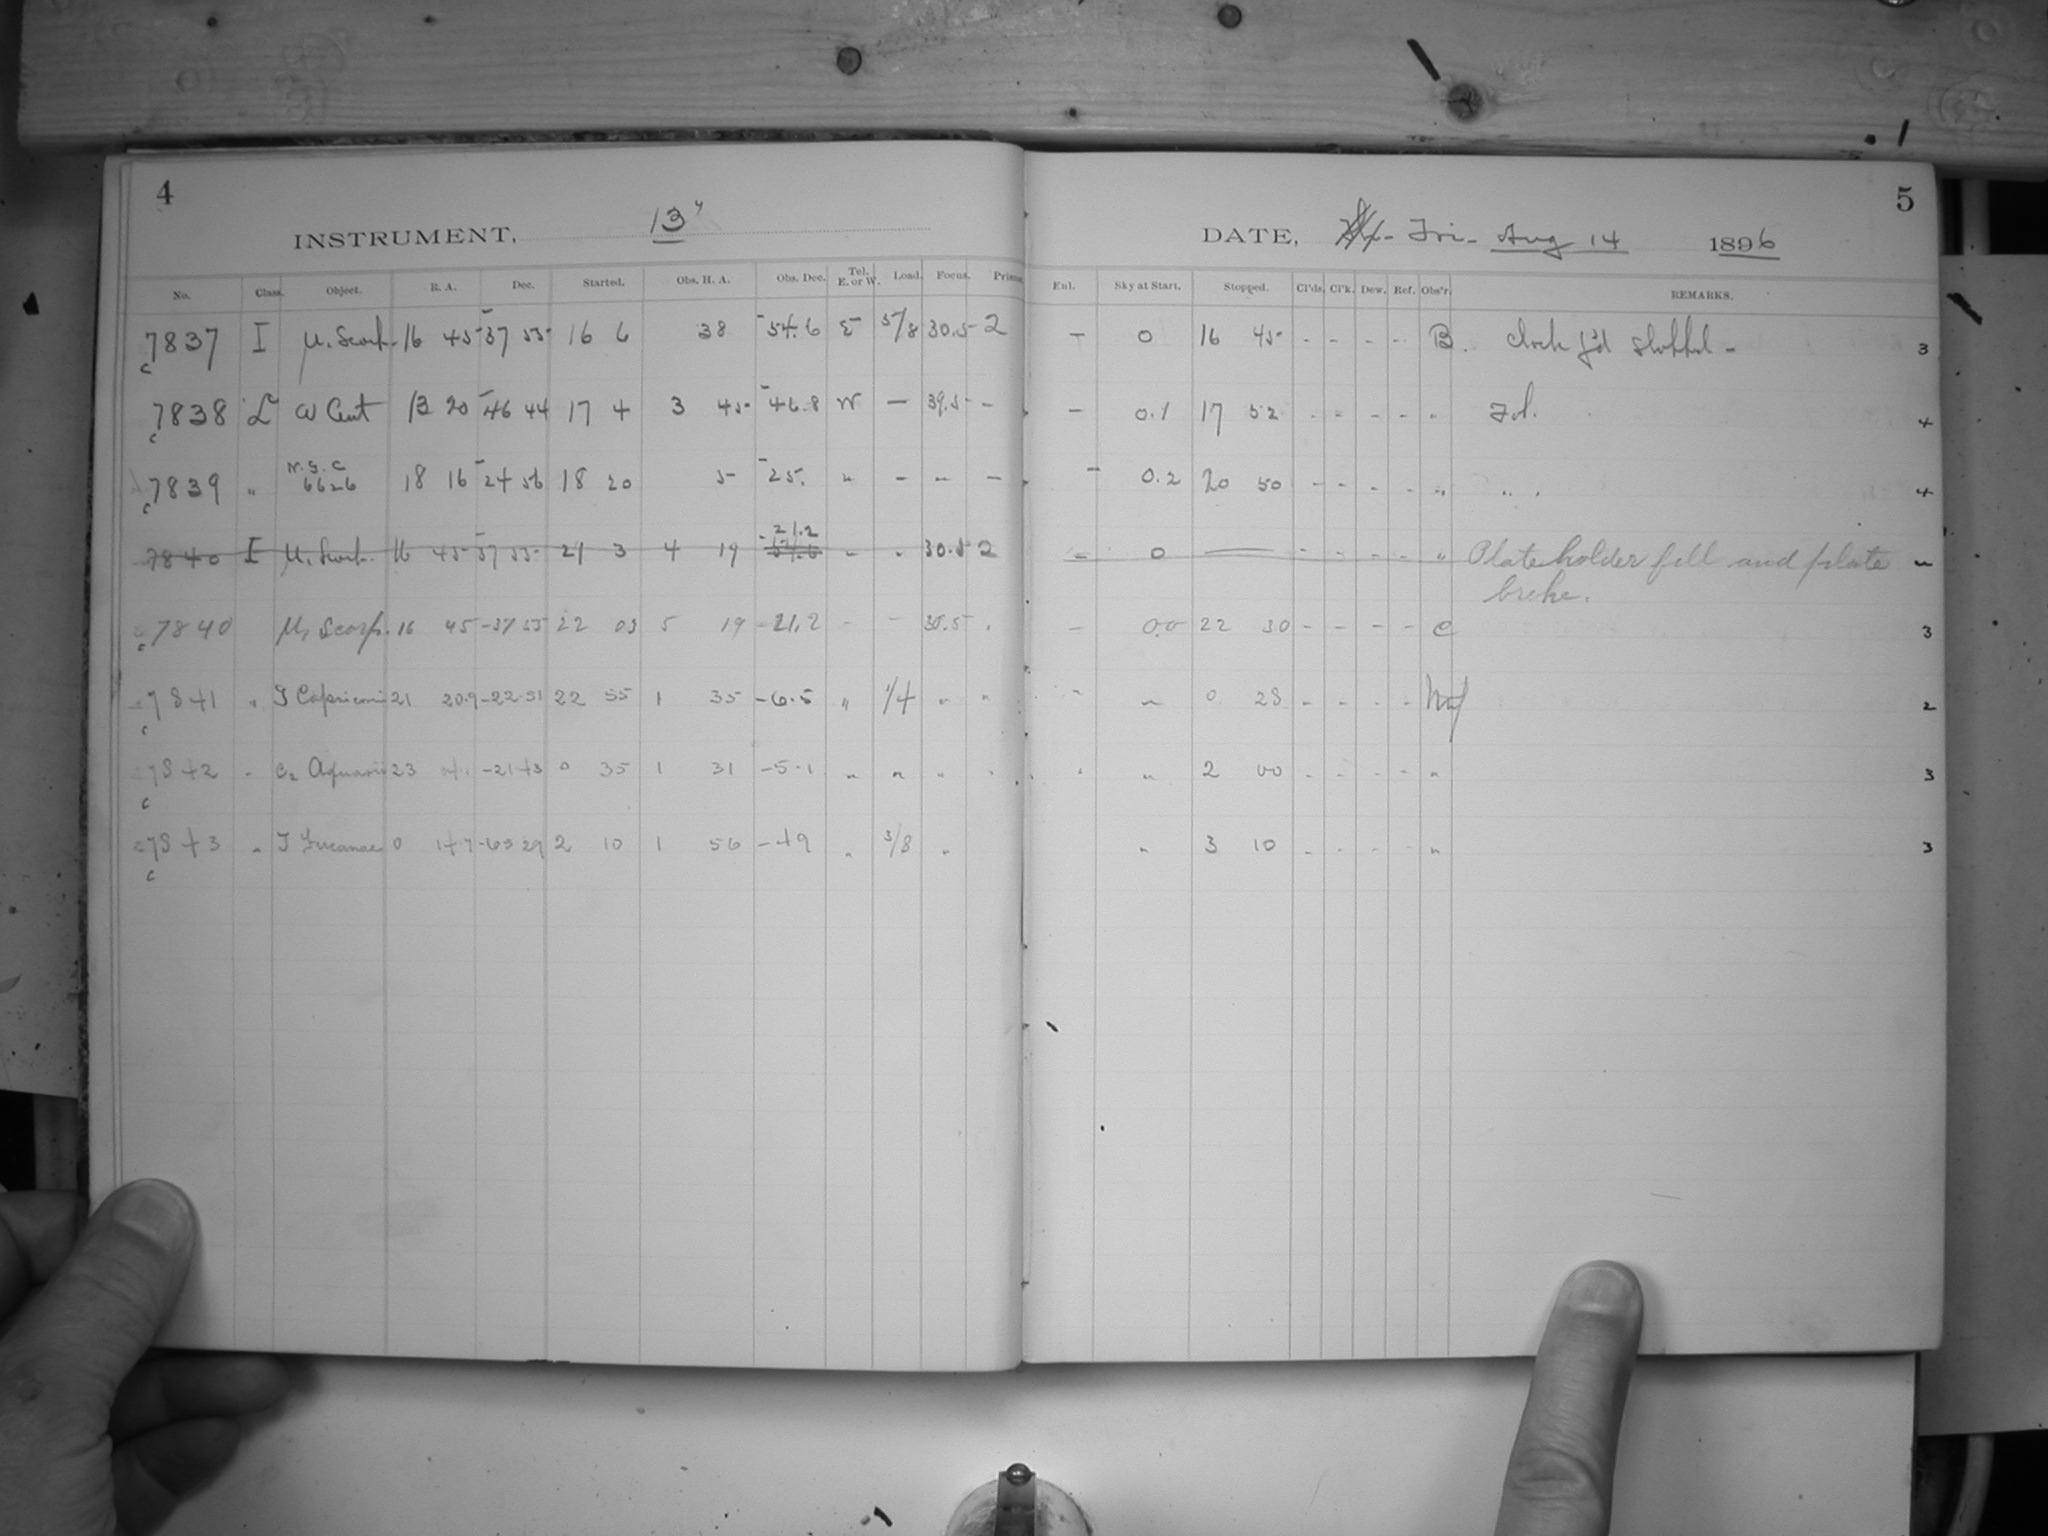 4
INSTRUMENT, 13"
No. Class. Object. R. A. Dec. Started. Obs. H. A. Obs. Dec. Tel. E. or W. Load. Focus. Prisms
7837 I μ, Scorp. 16 45 -37 53 16 6 38 -54.6 E 5/8 30.5 2
c
7838 L ω Cent 13 20 -46 44 17 4 3 45 -46.8 W — 39.5 -
c
7839 " N.G.C 6626 18 16 -24 56 18 20 5 -25. " - " -
c
7840 I μ, Scorp. 16 45 -37 53 21 3 4 19 -21.2 " " 30.5 2
7840 μ, Scorp. 16 45 -37 53 22 03 5 19 -21.2 - - 30.5
c
7841 " Capricorni 21 20.9 -22 51 22 55 1 35 -6.5 " 1/4 " "
c
7842 " c2 Aquarii 23 -21 43 0 35 1 31 -5.1 " " "
c
7843 " Tucanae 0 -65 29 2 10 1 56 -49 " 3/8 "
c
5
DATE, Fri- Aug 14 1896
Enl. Sky at Start. Stopped. Cl'ds. Cl'k. Dew. Ref. Obs'r. REMARKS.
- 0 16 45 - - - - B. Clock 3
- 0.1 17 52 - - - - " 4
- 0.2 20 50 - - - - " " . 4
- 0 — - - - - " Plate holder fell and plate
broke.
- 0.0 22 30 - - - - C 3
- " 0 28 - - - - 2
" 2 00 - - - - " 3
" 3 10 - - - - " 3